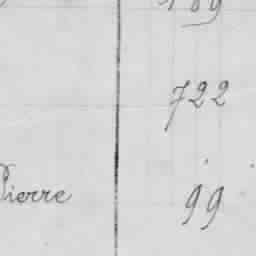 722
Pierre 99